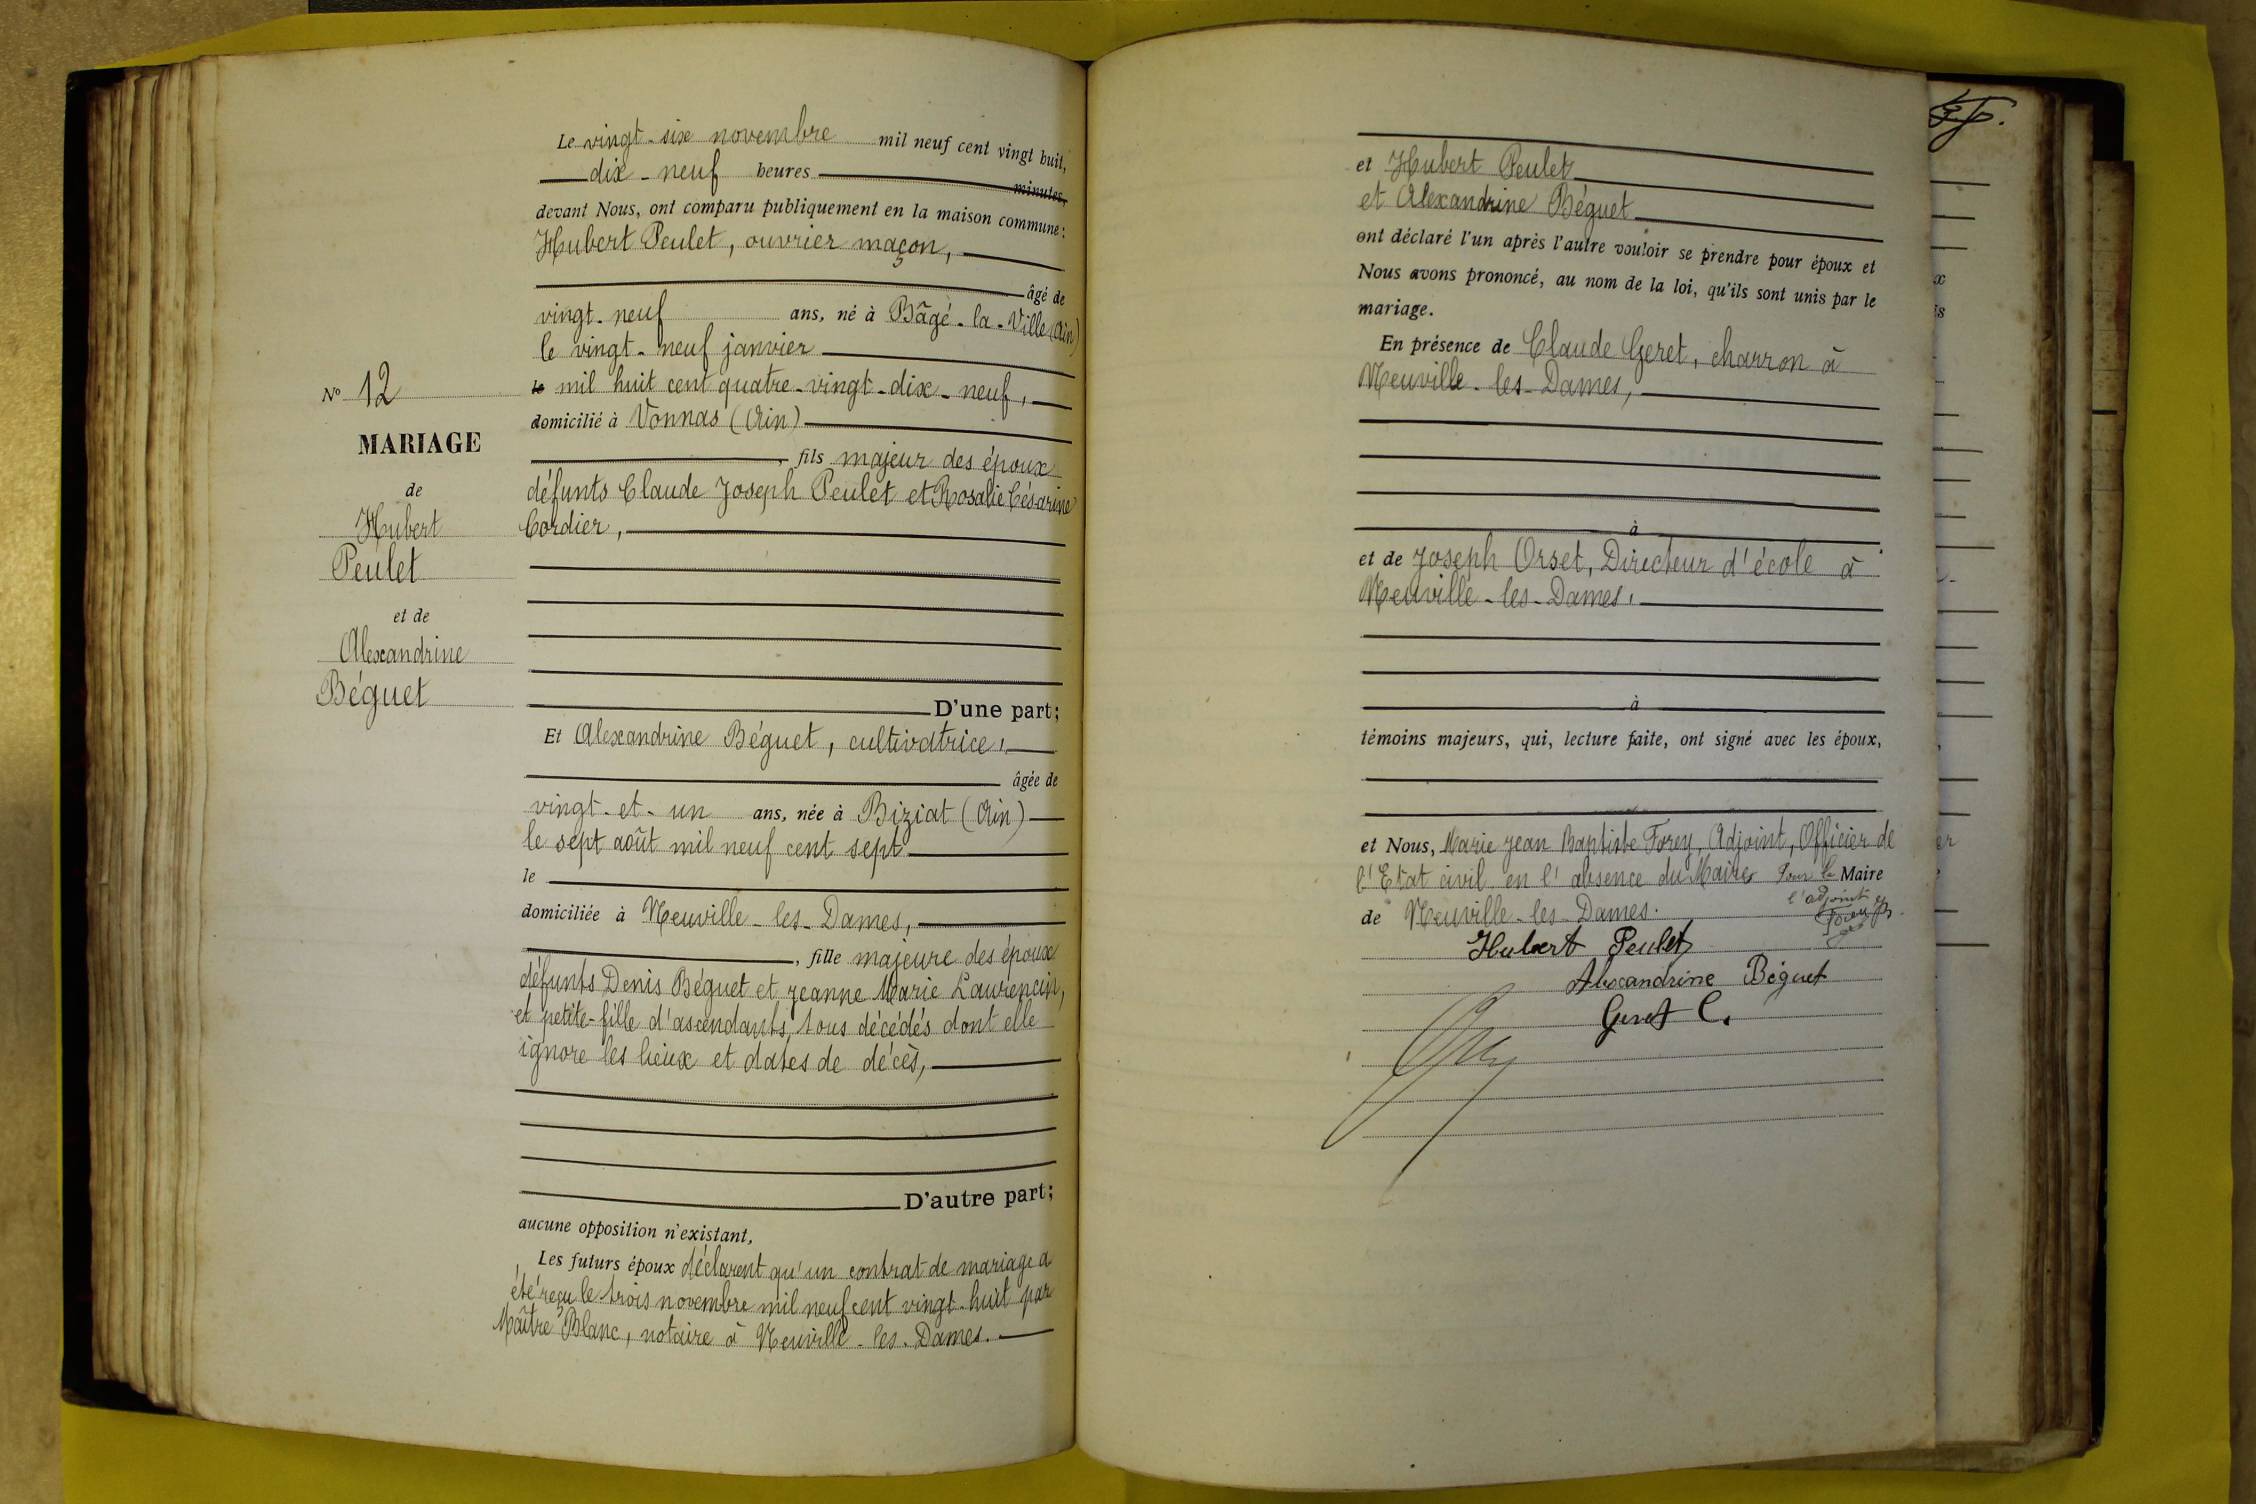 Le vingt-six novembre mil neuf cent vingt huit,
dix-neuf heures minutes,
devant Nous, ont comparu publiquement en la maison commune :
Hubert Peulet, ouvrier maçon,
âgé de
vingt-neuf ans, né à Bâgé-la-Ville (Ain)
le vingt-neuf janvier
le mil huit cent quatre-vingt-dix-neuf,
domicilié à Vonnas (Ain)
, fils majeur des époux
défunts Claude Joseph Peulet et Rosalie Césarine
Cordier,
D'une part ;
Et Alexandrine Béguet, cultivatrice,
âgée de
vingt-et-un ans, née à Biziat (Ain)
le sept août mil neuf cent sept
le
domiciliée à Neuville-les-Dames,
, fille majeure des époux
défunts Denis Béguet et Jeanne Marie Laurencin,
et petite-fille d'ascendants tous décédés dont elle
ignore les lieux et dates de décès,
D'autre part ;
aucune opposition n'existant,
Les futurs époux déclarent qu'un contrat de mariage a
été reçu le trois novembre mil neuf cent vingt-huit par
Maître Blanc, notaire à Neuville-les-Dames.
N° 12
MARIAGE
de
Hubert
Peulet
et de
Alexandrine
Béguet
et Hubert Peulet
et Alexandrine Béguet
ont déclaré l'un après l'autre vouloir se prendre pour époux et
Nous avons prononcé, au nom de la loi, qu'ils sont unis par le
mariage.
En présence de Claude Geret, charron à
Neuville-les-Dames,
à
et de Joseph Orset, Directeur d'école à
Neuville-les-Dames,
à
témoins majeurs, qui, lecture faite, ont signé avec les époux,
et Nous, Marie Jean Baptiste Forey, Adjoint, Officier de
l'Etat civil en l'absence du Maire Pour le Maire
l'adjoint
de Neuville-les-Dames.
Hubert Peulet
Alexandrine Béguet
Geret C.